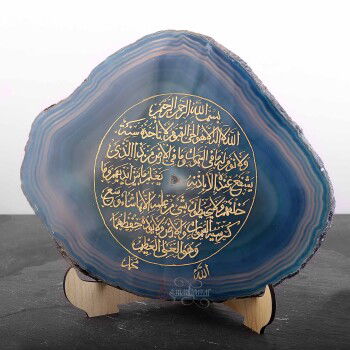 بسم الله الرحمن الرحيم
الله لا اله الا هو الحي القيوم لا تاخذه سنة
ولا نوم له ما في السموات وما في الارض من ذا الذي
يشفع عنده الا باذنه يعلم ما بين ايديهم وما
خلفهم ولا يحيطون بشيء من علمه الا بما شاء وسع
كرسيه السموات والارض ولا يؤده حفظهما
وهو العلي العظيم
الله
محمد